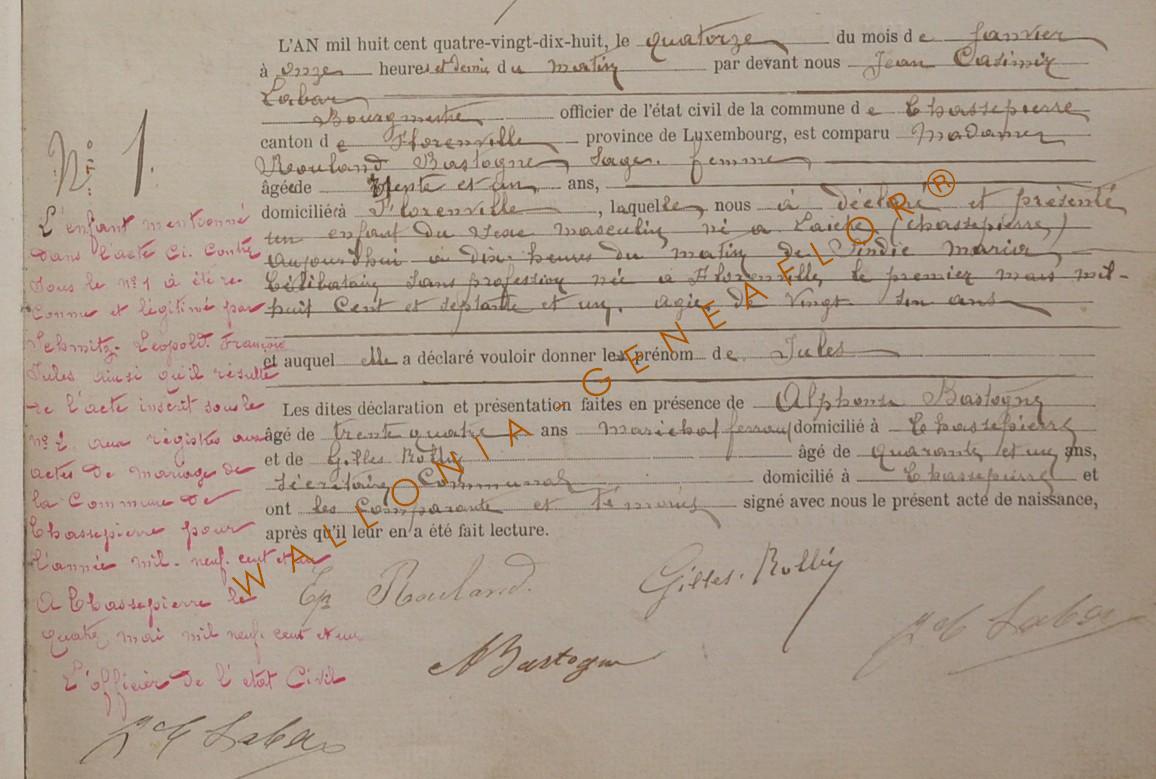 L'AN mil huit cent quatre-vingt-dix-huit, le quatorze du mois de Janvier
à onze heures et demie du matin par devant nous Jean Casimir
Labar
Bourgmestre officier de l'état civil de la commune de Chassepierre
canton de Florenville province de Luxembourg, est comparu Madame
Rouland Bastogne, Sage-femme,
âgée de trente et un ans,
domiciliée à Florenville, laquelle, nous a déclaré et présenté
un enfant du sexe masculin né à Laiche (Chassepierre)
aujourd'hui à dix heures du matin de Marie,
Célibataire sans profession née à Florenville, le premier mars mil-
huit cent et septante et un, agée de Vingt Six ans
et auquel elle a déclaré vouloir donner le prénom de Jules
Les dites déclaration et présentation faites en présence de Alphonse Bastogne
âgé de trente quatre ans Maréchal ferrant domicilié à Chassepierre
et de Gilles Rollin âgé de quarante et un ans,
Sécrétaire Communal domicilié à Chassepierre et
ont les Comparante et témoins signé avec nous le présent acte de naissance,
après qu'il leur en a été fait lecture.
Ep Rouland. Gilles. Rollin
ABastogne J C Labar
N° 1.
L'enfant mentionné
dans l'acte Ci. Contre
sous le n° 1 à été re-
connu et légitimé par
Schmitz. Leopold. François
Jules ainsi qu'il résulte
de l'acte inscrit sous le
n° 2 aux régistres aux
actes de mariage de
la Commune de
Chassepierre pour
l'année mil. neuf. cent et un
A Chassepierre le
quatre mai mil neuf. cent et un
L'officier de l'état Civil
J C Labar
WALLONIA - GENEAFLOR®